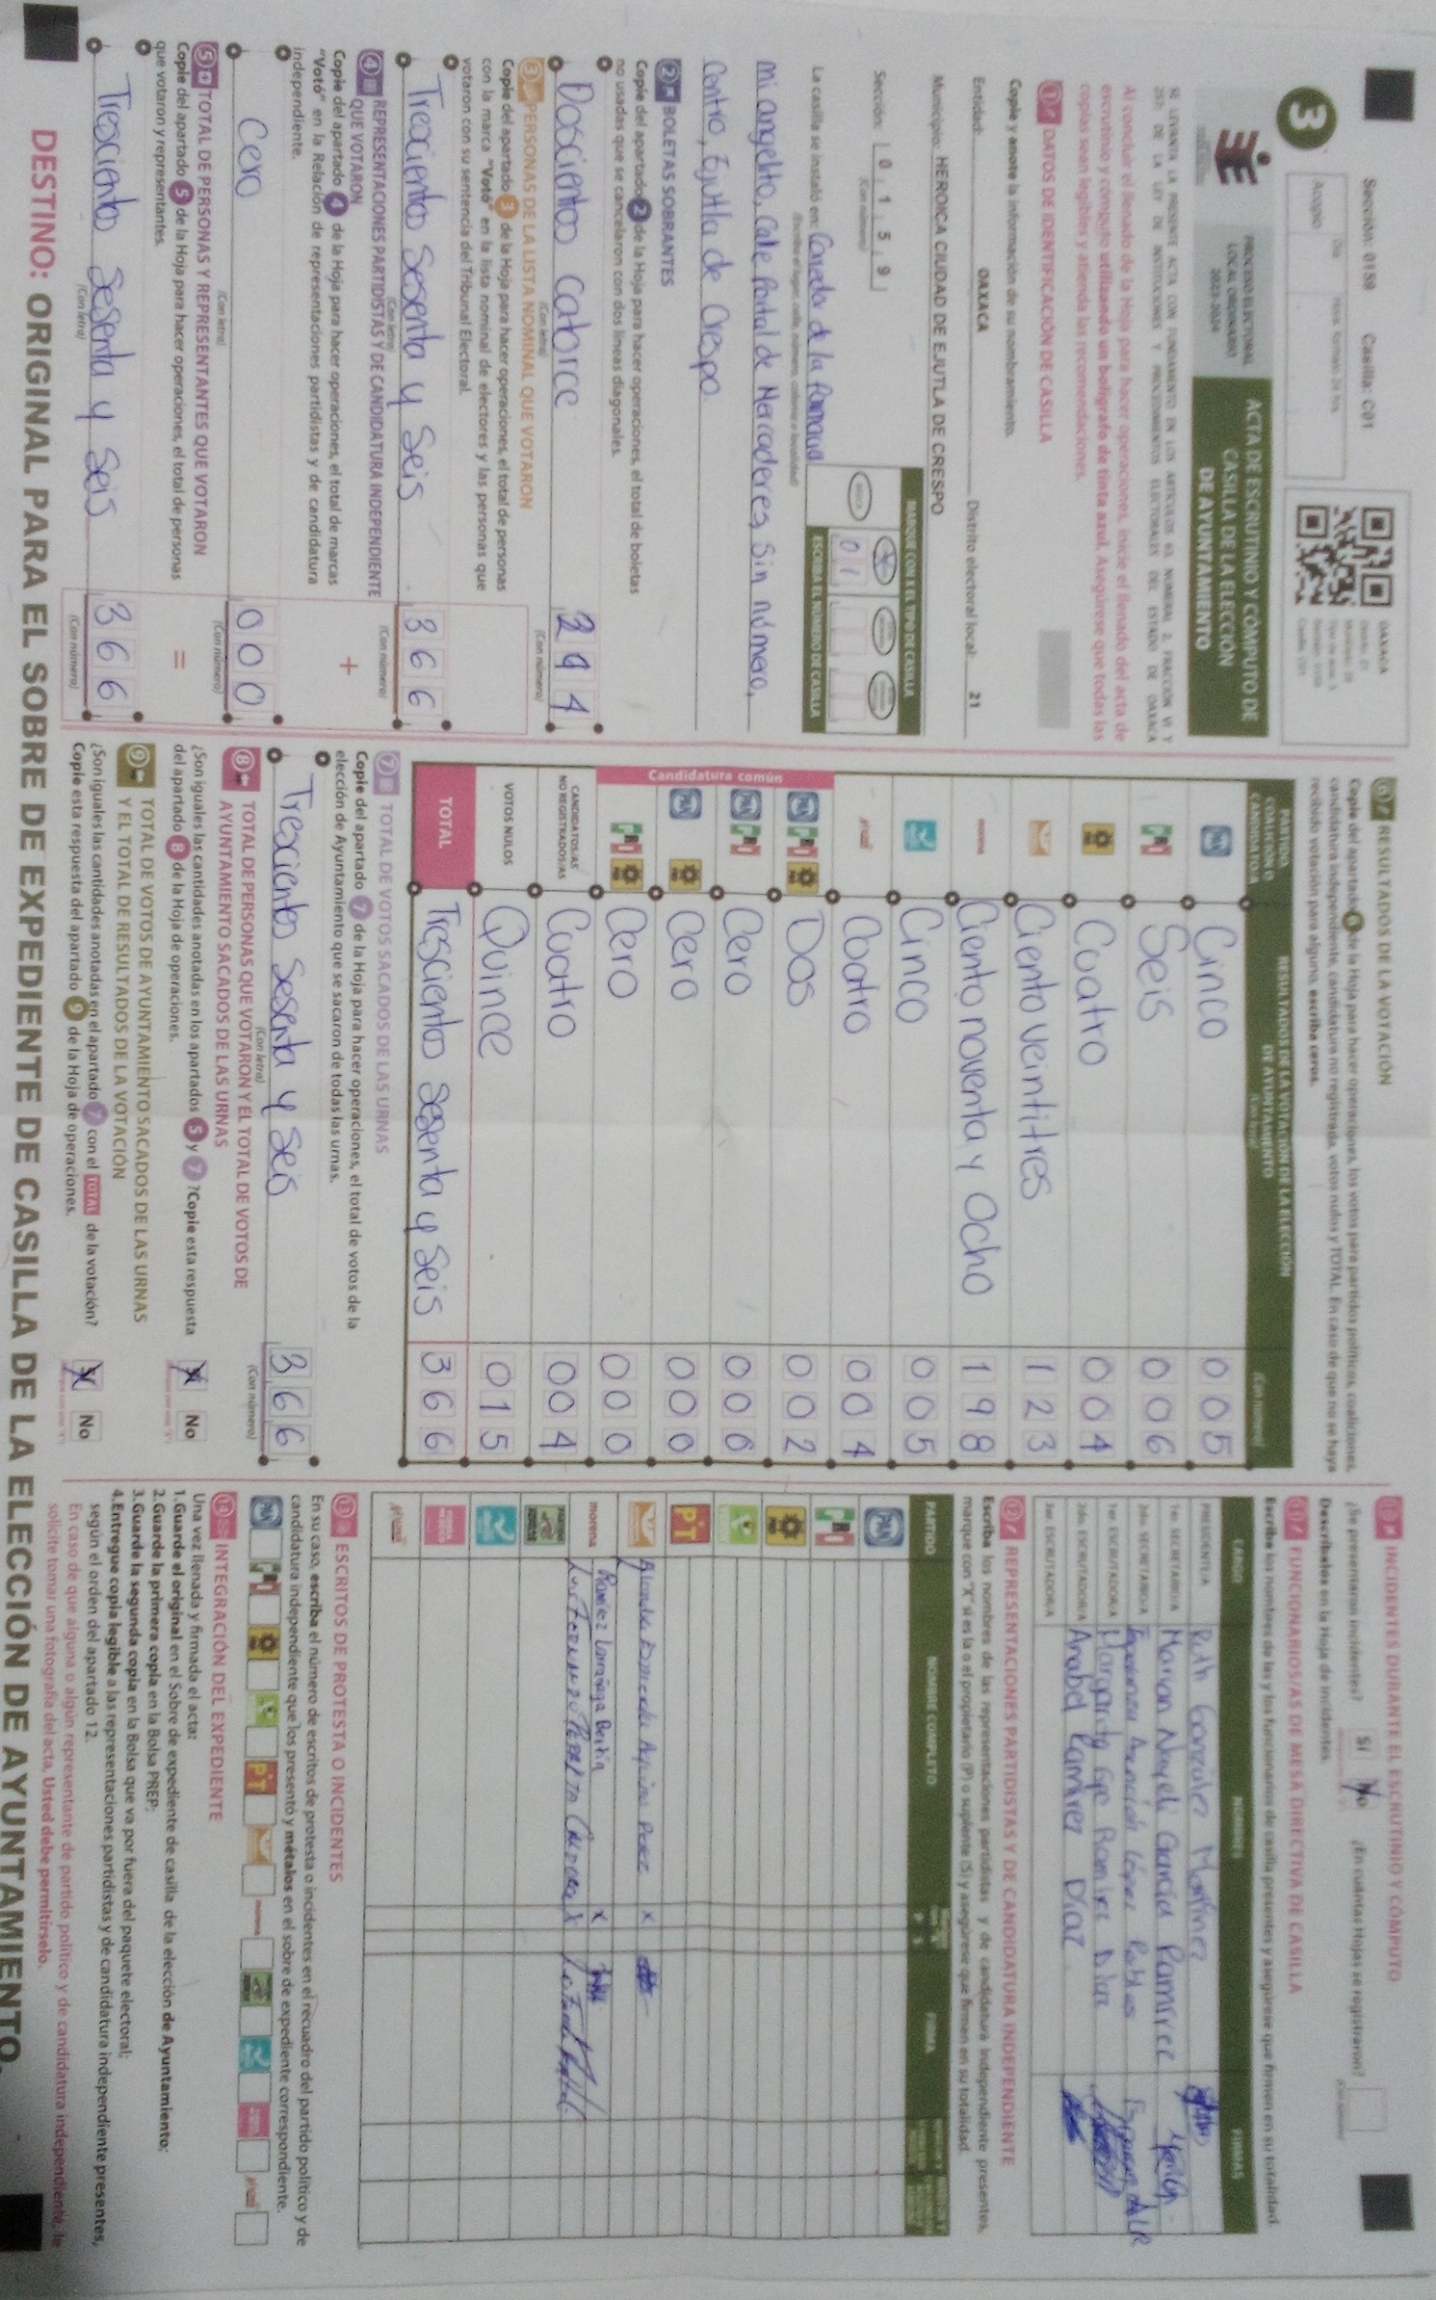 Sección: 0159 Casilla: C01
3
Acopio
Día
Hora: formato 24 hrs.
OAXACA
PROCESO ELECTORAL
LOCAL ORDINARIO
2023-2024
ACTA DE ESCRUTINIO Y CÓMPUTO DE
CASILLA DE LA ELECCIÓN
DE AYUNTAMIENTO
Al concluir el llenado de la Hoja para hacer operaciones, inicie el llenado del acta de
escrutinio y cómputo utilizando un bolígrafo de tinta azul. Asegúrese que todas las
copias sean legibles y atienda las recomendaciones.
1 DATOS DE IDENTIFICACIÓN DE CASILLA
Copie y anote la información de su nombramiento.
Entidad: OAXACA Distrito electoral local: 21
Municipio: HEROICA CIUDAD DE EJUTLA DE CRESPO
Sección: 0 1 5 9
(Con número)
MARQUE CON X EL TIPO DE CASILLA
0 1
ESCRIBA EL NÚMERO DE CASILLA
La casilla se instaló en: Corredor de la farmacia
mi angelito, Calle Portal de Mercaderes, Sin número,
Centro, Ejutla de Crespo
2 BOLETAS SOBRANTES
Copie del apartado 2 de la Hoja para hacer operaciones, el total de boletas
no usadas que se cancelaron con dos líneas diagonales.
Doscientos Catorce 2 1 4
(Con letra) (Con número)
3 PERSONAS DE LA LISTA NOMINAL QUE VOTARON
Copie del apartado 3 de la Hoja para hacer operaciones, el total de personas
con la marca "Votó" en la lista nominal de electores y las personas que
votaron con su sentencia del Tribunal Electoral.
Trecientos Sesenta y Seis 3 6 6
(Con letra) (Con número)
4 REPRESENTACIONES PARTIDISTAS Y DE CANDIDATURA INDEPENDIENTE
QUE VOTARON
Copie del apartado 4 de la Hoja para hacer operaciones, el total de marcas
"Votó" en la Relación de representaciones partidistas y de candidatura
independiente.
+
Cero 0 0 0
(Con letra) (Con número)
5 TOTAL DE PERSONAS Y REPRESENTANTES QUE VOTARON
Copie del apartado 5 de la Hoja para hacer operaciones, el total de personas
que votaron y representantes.
=
Tresciento Sesenta y Seis 3 6 6
(Con letra) (Con número)
6 RESULTADOS DE LA VOTACIÓN
Copie del apartado 6 de la Hoja para hacer operaciones, los votos para partidos políticos, coaliciones,
candidatura independiente, candidatura no registrada, votos nulos y TOTAL. En caso de que no se haya
recibido votación para alguno, escriba ceros.
PARTIDO, COALICIÓN O CANDIDATO/A
RESULTADOS DE LA VOTACIÓN DE LA ELECCIÓN DE AYUNTAMIENTO
(Con letra) (Con número)
PAN Cinco 0 0 5
PRI Seis 0 0 6
PRD Cuatro 0 0 4
Ciento veintitres 1 2 3
morena Ciento noventa y Ocho 1 9 8
Cinco 0 0 5
Cuatro 0 0 4
Candidatura común
PAN PRI PRD Dos 0 0 2
PAN PRI Cero 0 0 0
PAN PRD Cero 0 0 0
PRI PRD Cero 0 0 0
CANDIDATOS/AS NO REGISTRADOS/AS Cuatro 0 0 4
VOTOS NULOS Quince 0 1 5
TOTAL Trescientos Sesenta y Seis 3 6 6
7 TOTAL DE VOTOS SACADOS DE LAS URNAS
Copie del apartado 7 de la Hoja para hacer operaciones, el total de votos de la
elección de Ayuntamiento que se sacaron de todas las urnas.
Trescientos Sesenta y Seis 3 6 6
(Con letra) (Con número)
8 TOTAL DE PERSONAS QUE VOTARON Y EL TOTAL DE VOTOS DE
AYUNTAMIENTO SACADOS DE LAS URNAS
¿Son iguales las cantidades anotadas en los apartados 5 y 7? Copie esta respuesta
del apartado 8 de la Hoja de operaciones.
Sí No
9 TOTAL DE VOTOS DE AYUNTAMIENTO SACADOS DE LAS URNAS
Y EL TOTAL DE RESULTADOS DE LA VOTACIÓN
¿Son iguales las cantidades anotadas en el apartado 7 con el TOTAL de la votación?
Copie esta respuesta del apartado 9 de la Hoja de operaciones.
Sí No
10 INCIDENTES DURANTE EL ESCRUTINIO Y CÓMPUTO
¿Se presentaron incidentes? Sí No ¿En cuántas Hojas se registraron?
Descríbalos en la Hoja de incidentes.
11 FUNCIONARIOS/AS DE MESA DIRECTIVA DE CASILLA
Escriba los nombres de las y los funcionarios de casilla presentes y asegúrese que firmen en su totalidad.
CARGO NOMBRES FIRMAS
PRESIDENTE/A Ruth González Martínez
1er. SECRETARIO/A Marian Nayeli García Ramírez
2do. SECRETARIO/A
1er. ESCRUTADOR/A Margarita
2do. ESCRUTADOR/A Anabel Ramírez Díaz
3er. ESCRUTADOR/A
12 REPRESENTACIONES PARTIDISTAS Y DE CANDIDATURA INDEPENDIENTE
Escriba los nombres de las representaciones partidistas y de candidatura independiente presentes,
marque con "X" si es la o el propietario (P) o suplente (S) y asegúrese que firmen en su totalidad.
PARTIDO NOMBRE COMPLETO P S FIRMA
PAN
PRI
PRD
PT
X
morena Ramírez X
X
13 ESCRITOS DE PROTESTA O INCIDENTES
En su caso, escriba el número de escritos de protesta o incidentes en el recuadro del partido político y de
candidatura independiente que los presentó y métalos en el sobre de expediente correspondiente.
PAN PRI PRD PT morena
14 INTEGRACIÓN DEL EXPEDIENTE
Una vez llenada y firmada el acta:
1. Guarde el original en el Sobre de expediente de casilla de la elección de Ayuntamiento;
2. Guarde la primera copia en la Bolsa PREP;
3. Guarde la segunda copia en la Bolsa que va por fuera del paquete electoral;
4. Entregue copia legible a las representaciones partidistas y de candidatura independiente presentes,
según el orden del apartado 12.
En caso de que alguna o algún representante de partido político y de candidatura independiente, le
solicite tomar una fotografía del acta, Usted debe permitírselo.
DESTINO: ORIGINAL PARA EL SOBRE DE EXPEDIENTE DE CASILLA DE LA ELECCIÓN DE AYUNTAMIENTO.